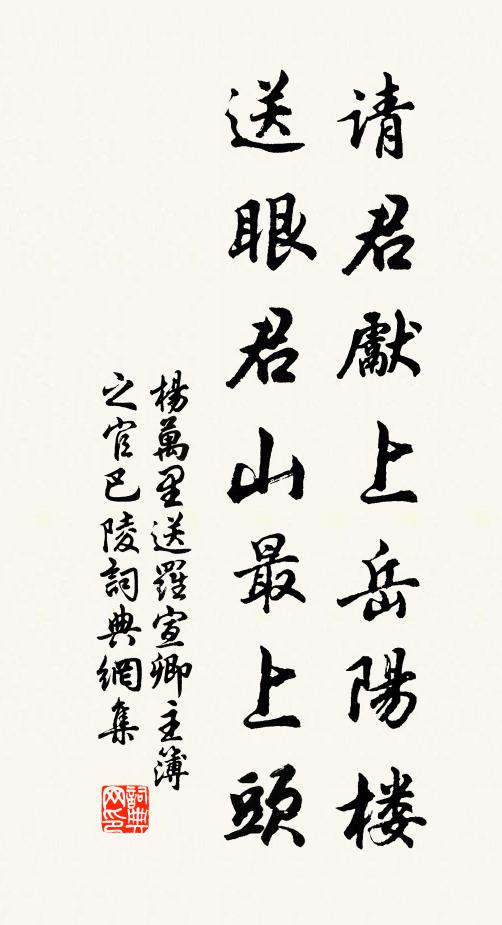 请君獻上岳陽楼
送眼君山最上頭
楊萬里送羅宣卿主簿
之官巴陵詞典網集
詞典
网印